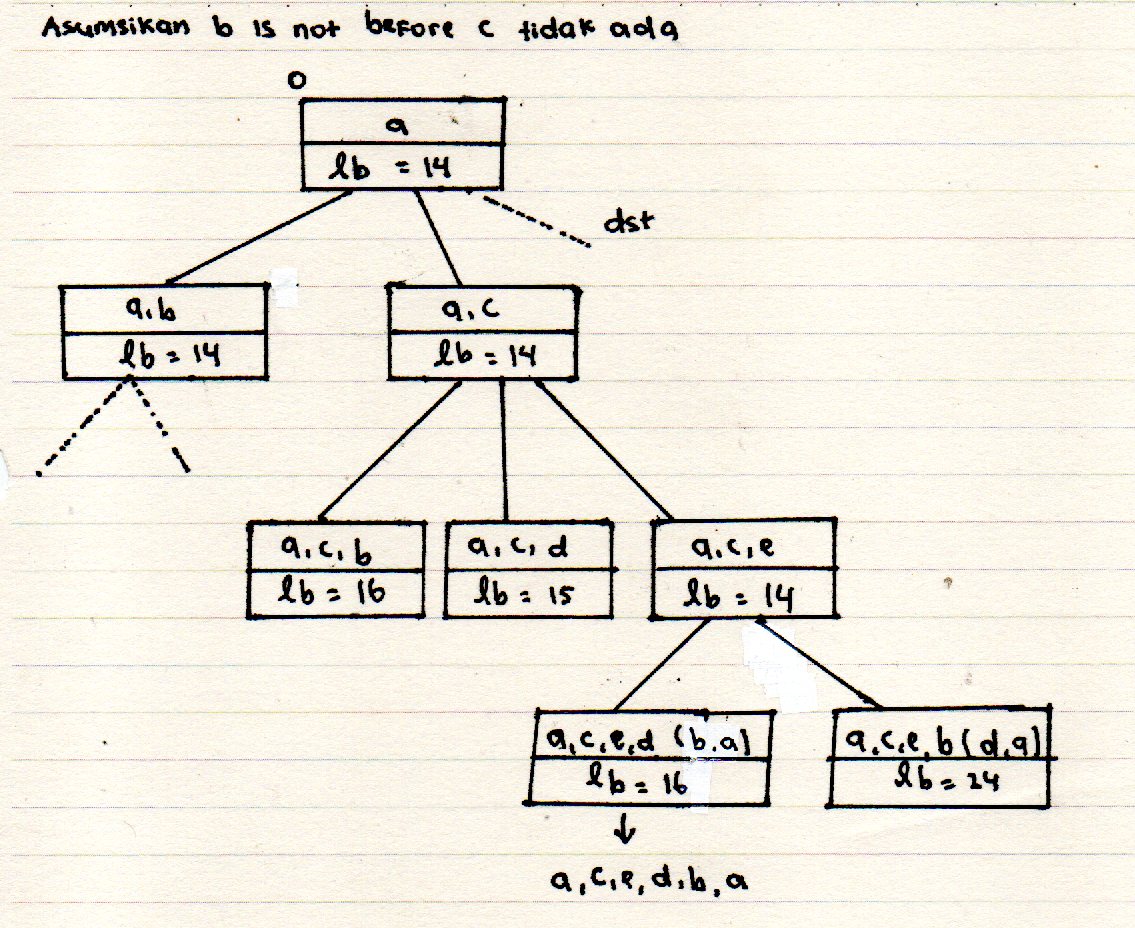 Asumsikan b is not before c tidak ada
0
a
lb = 14
dst
a,b
lb = 14
a,c
lb = 14
a,c,b
lb = 16
a,c,d
lb = 15
a,c,e
lb = 14
a,c,e,d (b,a)
lb = 16
a,c,e,b (d,a)
lb = 24
a,c,e,d,b,a